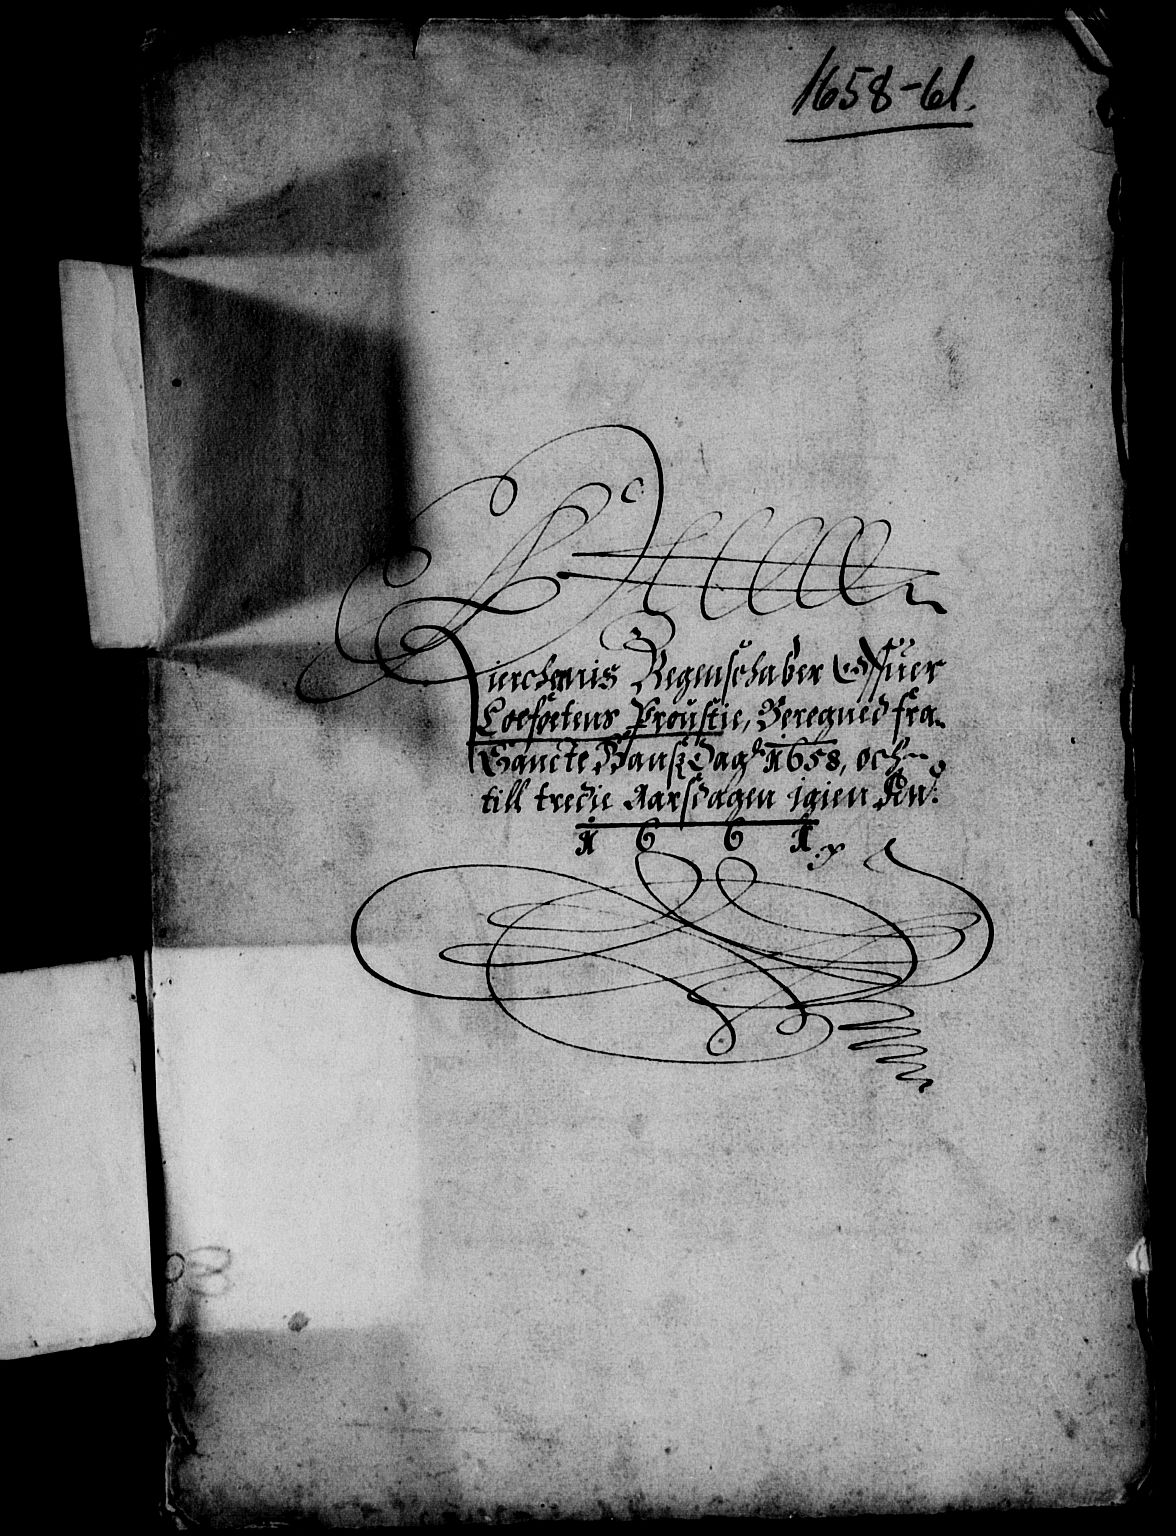 1658-61.
Kierchernis Regenschaber Offuer
Loefoetens Proustie, Beregned fra
Sancte Hansz Dag 1658, och
till tredie Aarsdagen igien Ao:
1 6 6 1